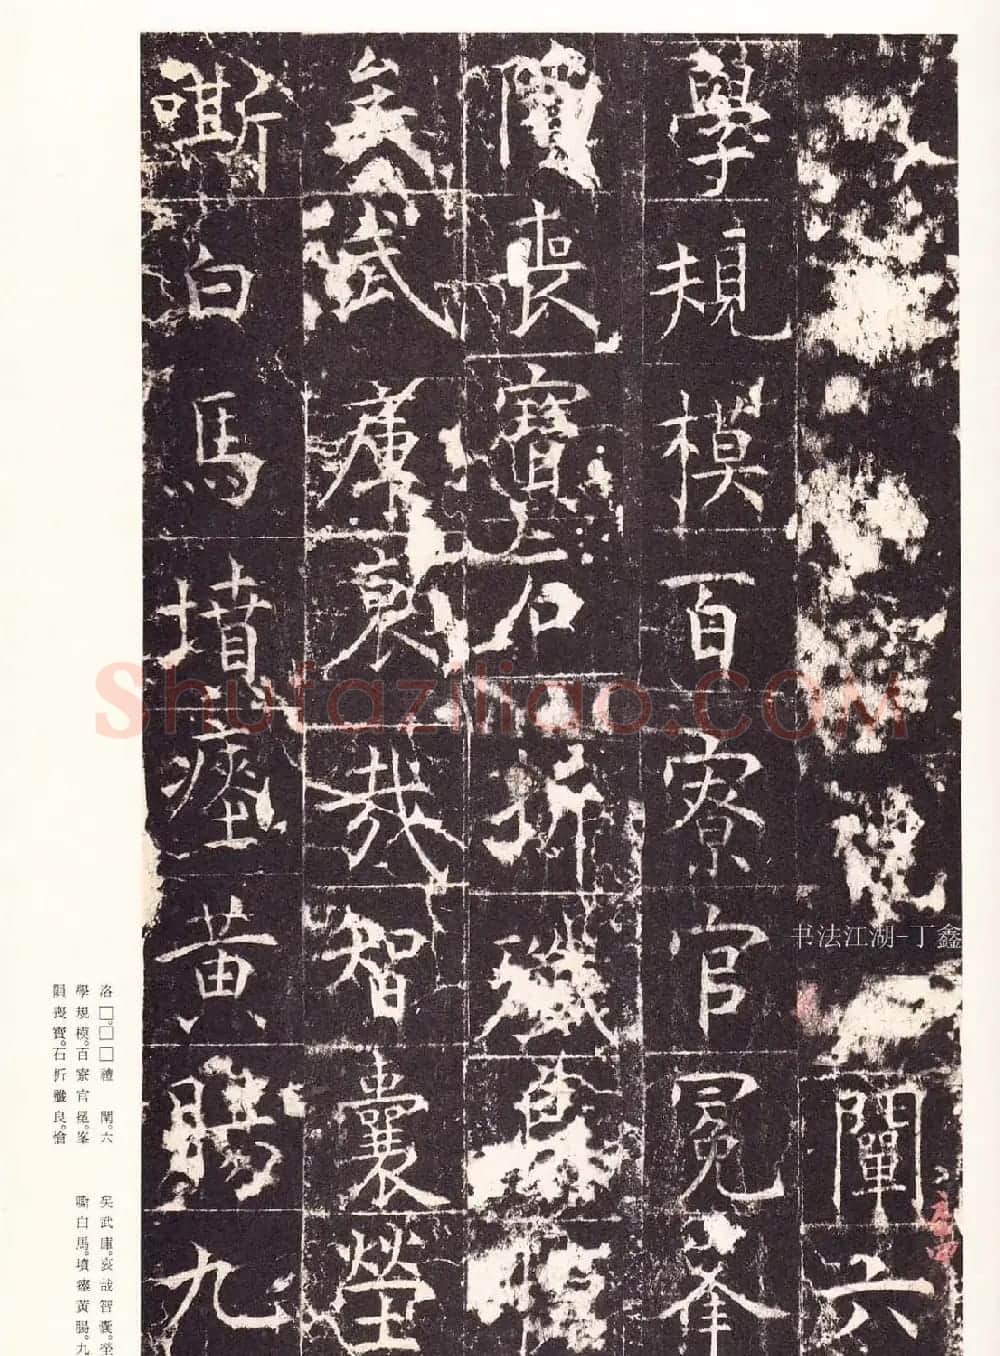 闡六
學規模百寮官冕峯
隕喪寶石折殲良愴
矣武庫哀哉智囊塋
嘶白馬墳瘞黃腸九
Shufaziliao.COM
书法江湖-丁鑫
洛□。□□禮 闡。六
學規模。百寮官冕。峯
隕喪寶。石折殲良。愴
矣武庫。哀哉智囊。塋
嘶白馬。墳瘞黃腸。九